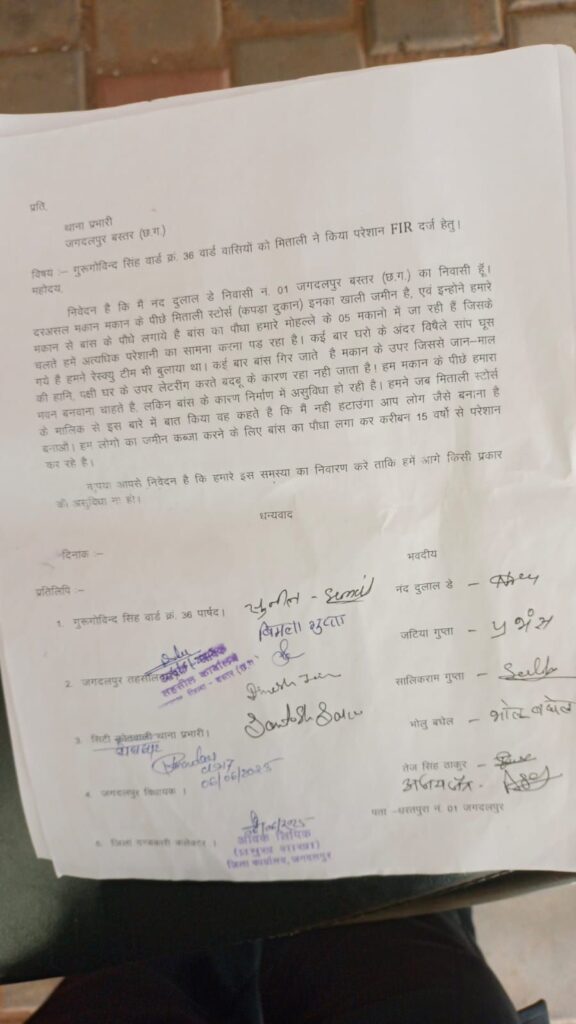 प्रति,
थाना प्रभारी
जगदलपुर बस्तर (छ.ग.)
विषय :– गुरूगोविन्द सिंह वार्ड क्रं. 36 वार्ड वासियों को मिताली ने किया परेशान FIR दर्ज हेतु।
महोदय,
निवेदन है कि मैं नंद दुलाल डे निवासी नं. 01 जगदलपुर बस्तर (छ.ग.) का निवासी हूँ।
दरअसल मकान मकान के पीछे मिताली स्टोर्स (कपडा दुकान) इनका खाली जमीन है, एवं इन्होने हमारे
मकान से बास के पौधे लगाये है बांस का पौधा हमारे मोहल्ले के 05 मकानो में जा रही हैं जिसके
चलते हमें अत्यधिक परेशानी का सामना करना पड़ रहा है। कई बार घरो के अंदर विषैले सांप घूस
गये है हमने रेस्क्यु टीम भी बुलाया था। कई बार बांस गिर जाते है मकान के उपर जिससे जान–माल
की हानि, पक्षी घर के उपर लेटरींग करते बदबू के कारण रहा नही जाता है। हम मकान के पीछे हमारा
भवन बनवाना चाहते है, लकिन बांस के कारण निर्माण में असुविधा हो रही है। हमने जब मिताली स्टोर्स
के मालिक से इस बारे में बात किया वह कहते है कि मैं नही हटाउंगा आप लोग जैसे बनाना है
बनाओं। हम लोगो का जमीन कब्जा करने के लिए बांस का पौधा लगा कर करीबन 15 वर्षो से परेशान
कर रहे है।
आपसे निवेदन है कि हमारे इस समस्या का निवारण करे ताकि हमें आगे किसी प्रकार
की असुविधा ना हो।
धन्यवाद
दिनांक :–
भवदीय
प्रतिलिपि :–
1. गुरूगोविन्द सिंह वार्ड क्रं. 36 पार्षद।
सुनील –
बिमला गुप्ता
नंद दुलाल डे –
जटिया गुप्ता –
2. जगदलपुर तहसील
तहसील कार्यालय
जिला - बस्तर (छ.ग.)
सालिकराम गुप्ता –
3. सिटी कोतवाली थाना प्रभारी।
Santosh
भोलु बघेल – भोलू बघेल
06/06/2025
4. जगदलपुर विधायक ।
तेज सिंह ठाकुर –
पता –धरतपुरा नं. 01 जगदलपुर
5. जिला कलेक्टर ।
आवक लिपिक
जिला कार्यालय, जगदलपुर